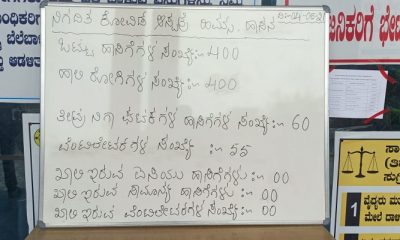 ನಿಗದಿತ ಕೋವಿಡ್ ಆಸ್ಪತ್ರೆ ಹಿಮ್ಸ್, ಹಾಸನ
ಒಟ್ಟು ಹಾಸಿಗೆಗಳ ಸಂಖ್ಯೆ:- 400
ಹಾಲಿ ರೋಗಿಗಳ ಸಂಖ್ಯೆ:- 400
ತೀವ್ರ ನಿಗಾ ಘಟಕಗಳ ಹಾಸಿಗೆಗಳ ಸಂಖ್ಯೆ:- 60
ವೆಂಟಿಲೇಟರಗಳ ಸಂಖ್ಯೆ :- 55
ಖಾಲಿ ಇರುವ ಐಸಿಯು ಹಾಸಿಗೆಗಳು :- 00
ಖಾಲಿ ಇರುವ ಸಾಮಾನ್ಯ ಹಾಸಿಗೆಗಳು :- 00
ಖಾಲಿ ಇರುವ ವೆಂಟಿಲೇಟರಗಳ ಸಂಖ್ಯೆ :- 00
ಂಧಿಕರಿಗೆ
ಬೆಲೆಬಾ
ಆಡಳಿತ
ಜನಿಕರಿಗೆ ಭೇ
ಸಾ
(ತಿ
ಸುಗ್ರಿ
1 ವೈದ್ಯರು ಮ
ಮೇಲೆ ದಾಳ